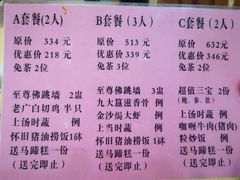 A套餐(2人)
原价 334 元
优惠价 218 元
免茶 2位
至尊佛跳墙 2盅
老广白切鸡 半只
上汤时蔬 例
怀旧猪油捞饭1砵
送马蹄糕一份
(送完即止)
B套餐(3人)
原价 513 元
优惠价 339 元
免茶 3位
至尊佛跳墙 3盅
九大簋滋香骨 例
金沙焗大虾 例
上当时蔬 例
怀旧猪油捞饭1砵
送马蹄糕一份
(送完即止)
C套餐(2人)
原价 632元
优惠价 346元
免茶 2位
超值三宝 2份
(鲍、参、肚)
上汤时蔬 例
咖喱牛肉(猪、
粒炒饭 例
送马蹄糕一份
(送完即止)